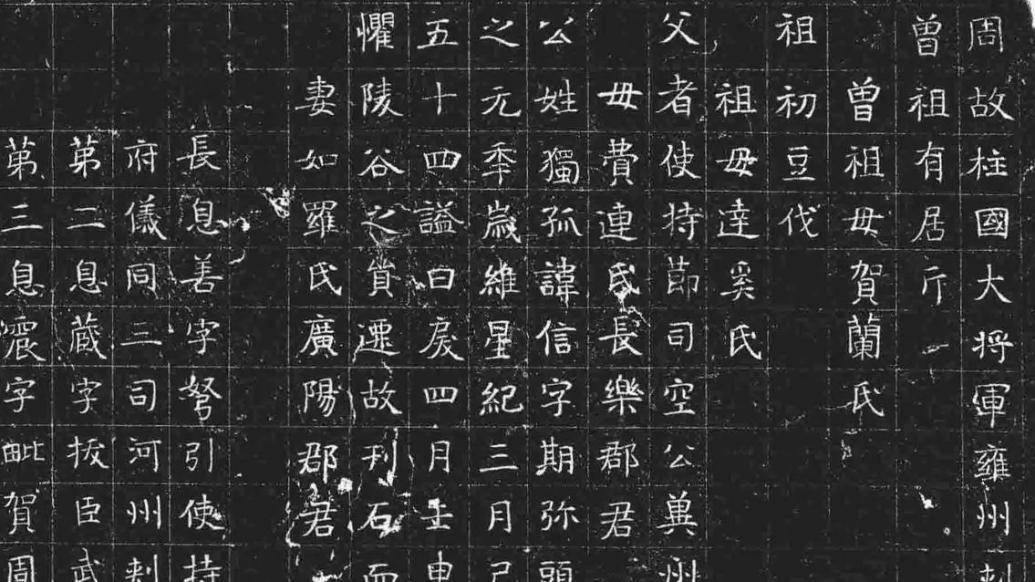 周故柱國大将軍雍州刺
曾祖有居斤
曾祖母賀蘭氏
祖初豆伐
祖母達奚氏
父者使持節司空公冀州
母費連氏長樂郡君
公姓獨孤諱信字期弥頭
之元年歲維星紀三月己
五十四謚曰戾四月壬申
懼陵谷之貿遷故刊石而
妻如羅氏廣陽郡君
長息善字弩引使持
府儀同三司河州刺
第二息藏字拔臣武
第三息震字毗賀周